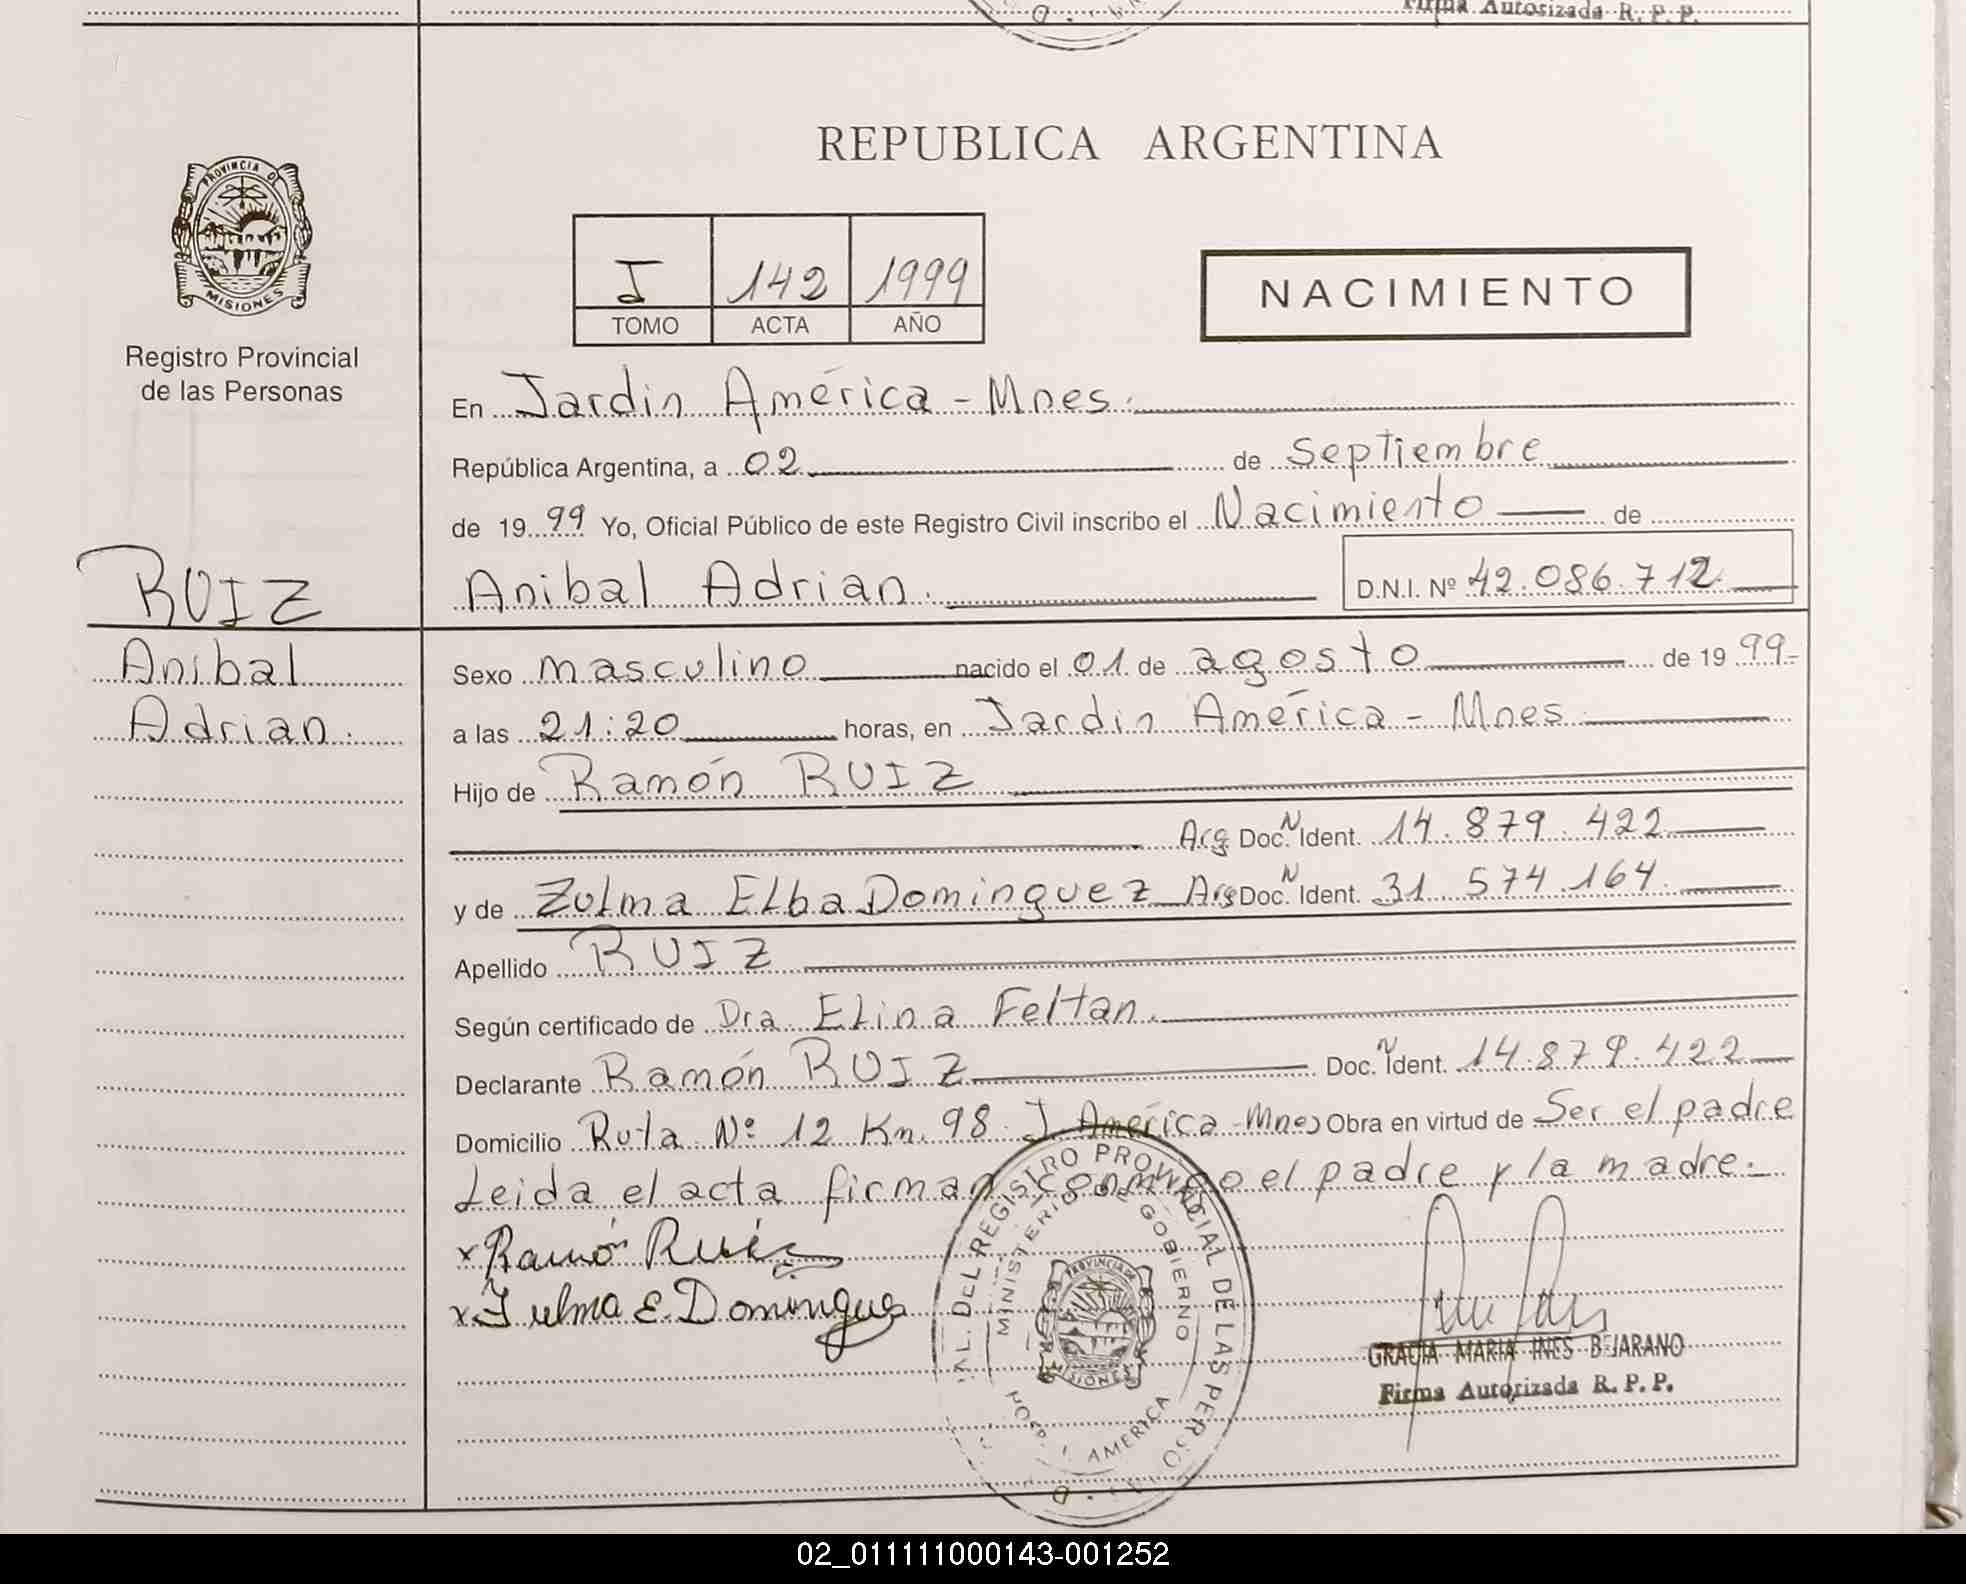 Firma Autorizada R. P. P.
PROVINCIA DE
MISIONES
Registro Provincial
de las Personas
RUIZ
Anibal
Adrian.
REPUBLICA ARGENTINA
I 142 1999
TOMO ACTA AÑO
NACIMIENTO
En Jardin América - Mnes.
República Argentina, a 02 de Septiembre
de 19 99 Yo, Oficial Público de este Registro Civil inscribo el Nacimiento de
Anibal Adrian. D.N.I. Nº 42.086.712.
Sexo masculino nacido el 01 de agosto de 19 99-
a las 21:20 horas, en Jardin América - Mnes
Hijo de Ramón RUIZ
Arg Doc. N Ident. 14.879.422
y de Zulma Elba Dominguez Arg Doc. N Ident. 31.574.164.
Apellido RUIZ
Según certificado de Dra Elina Feltan.
Declarante Ramón RUIZ Doc. N Ident. 14.879.422
Domicilio Ruta Nº 12 Km. 98 J. América - Mnes Obra en virtud de Ser el padre
Leida el acta firman conmigo el padre y la madre.
x Ramón Ruiz
x Zulma E. Domingues
DEL REGISTRO PROVINCIAL DE LAS PERSONAS
MINISTERIO DE GOBIERNO
PROVINCIA DE
MISIONES
AMERICA
GRACIA MARIA INES BEJARANO
Firma Autorizada R. P. P.
02_011111000143-001252